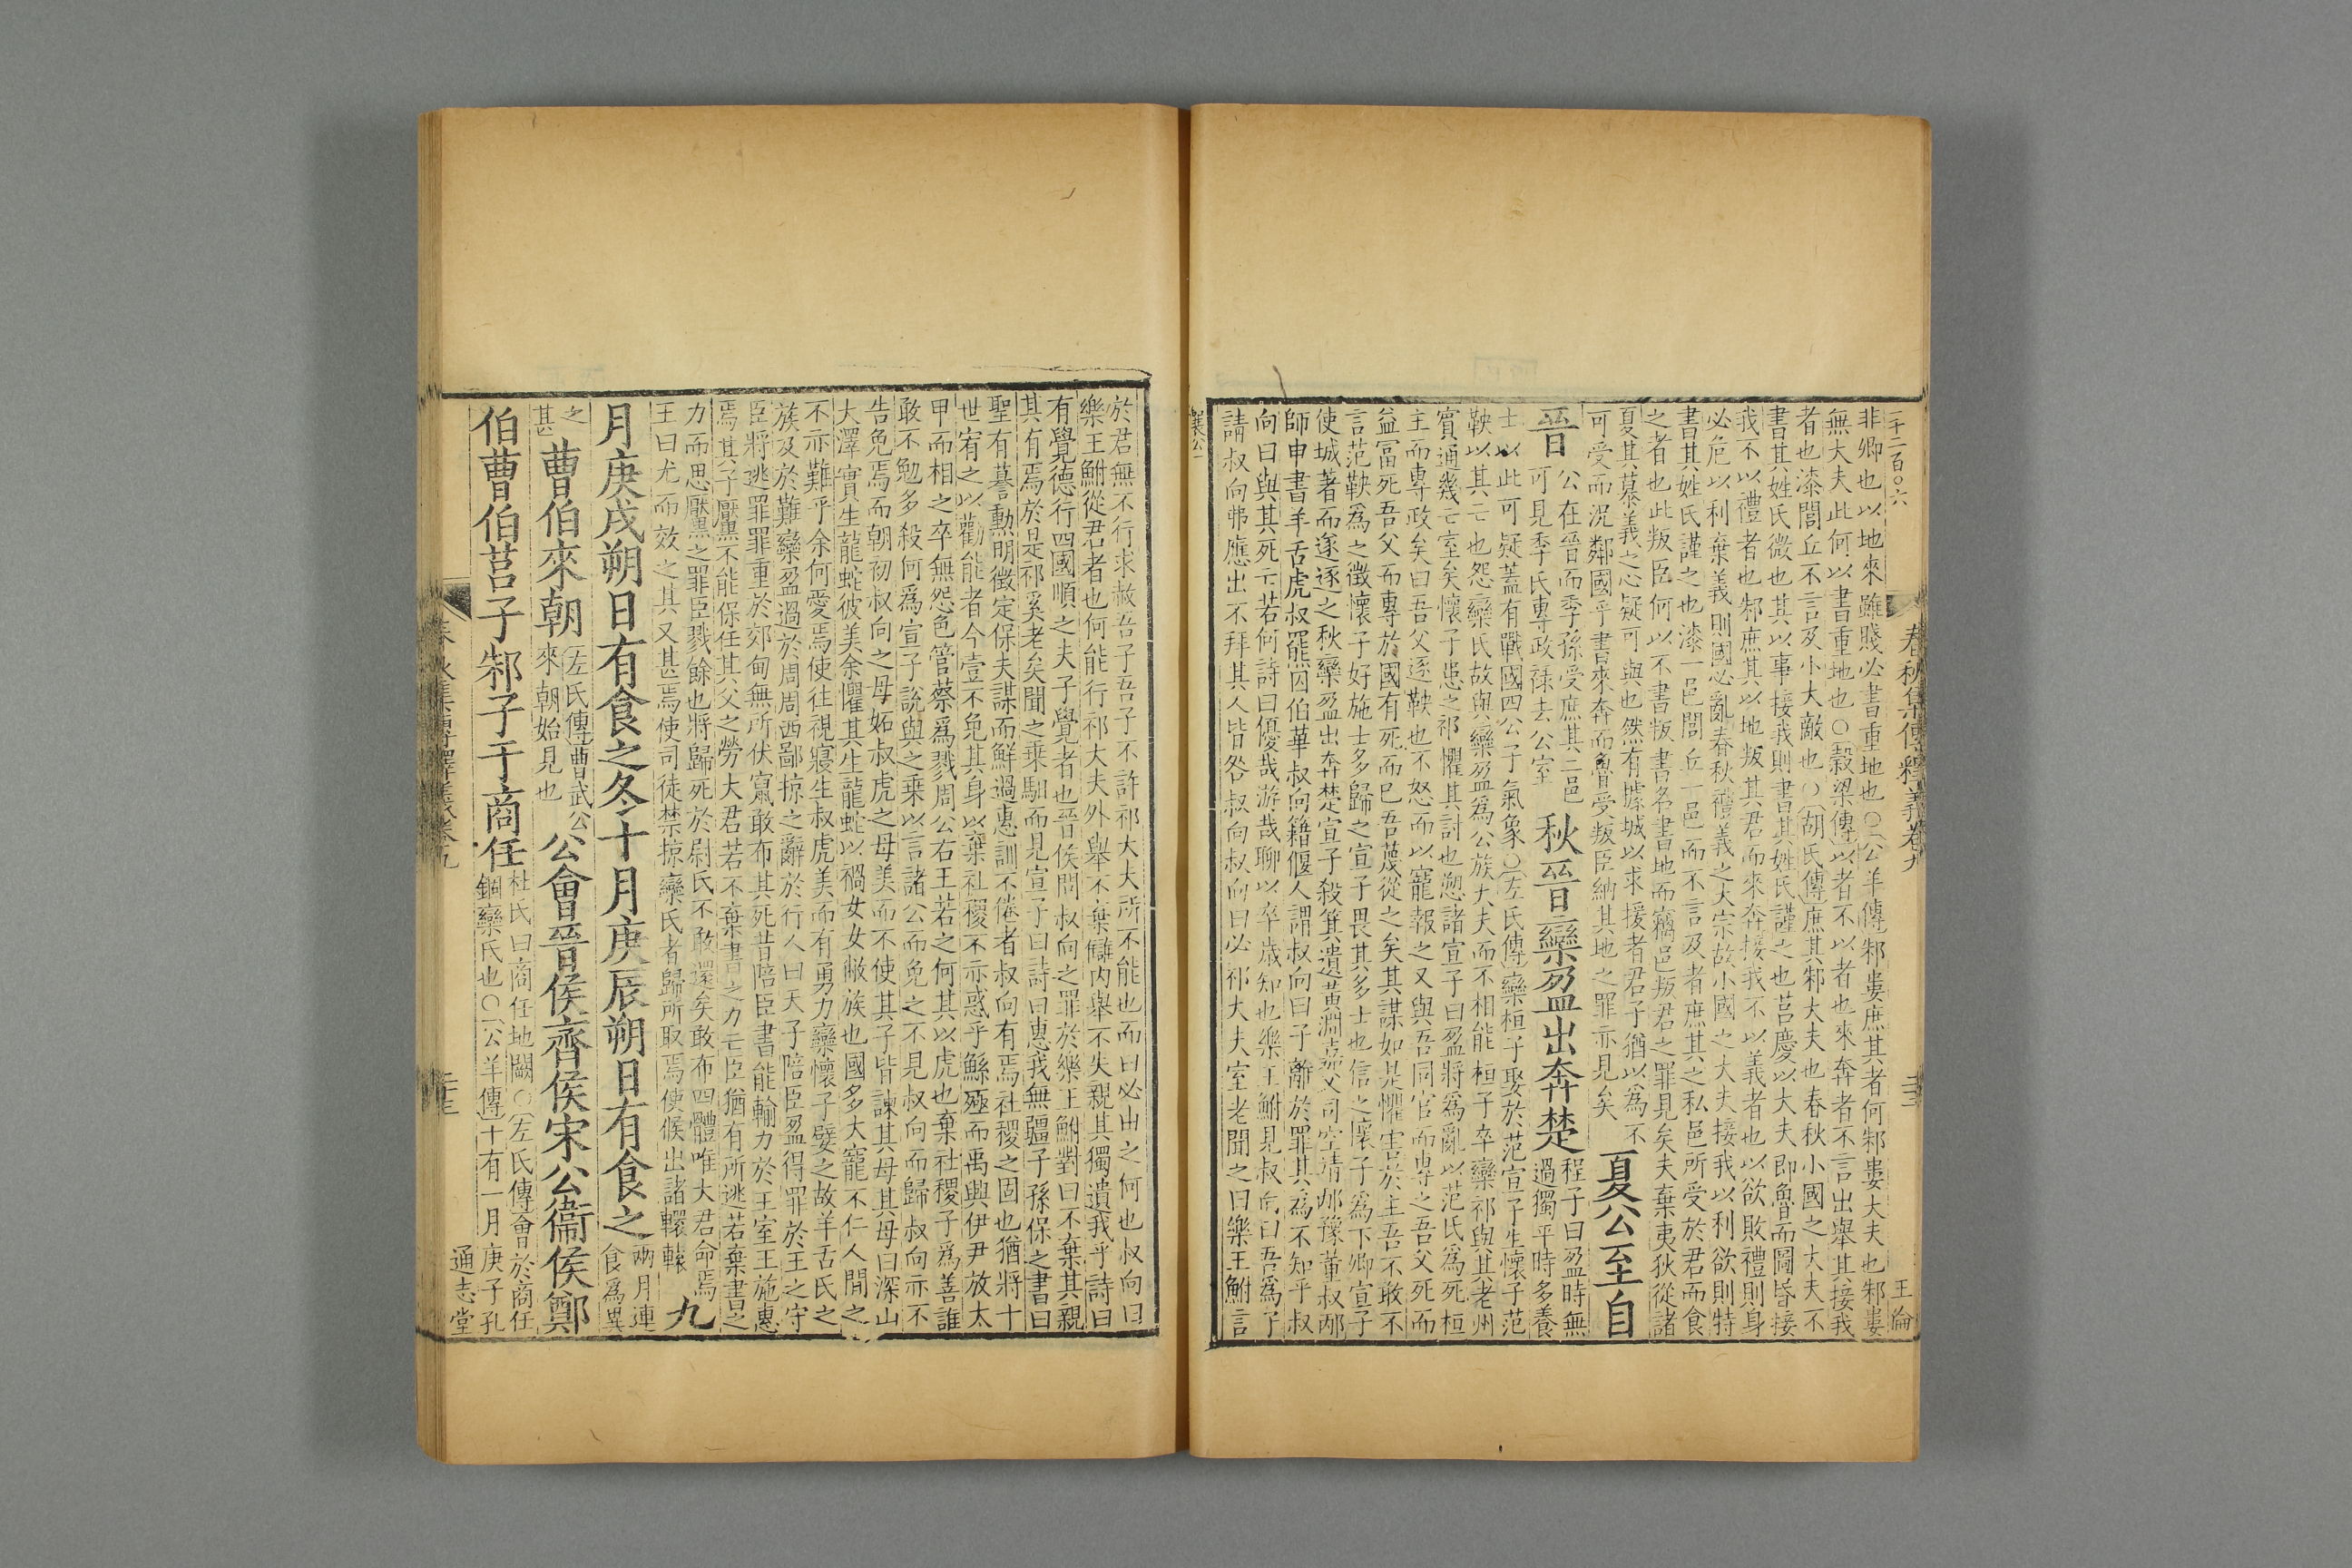 二千二百〇六
春秋集傳釋義卷九
王倫
非卿也以地來雖賤必書重地也〇公羊傳邾婁庶其者何邾婁大夫也邾婁
無大夫此何以書重地也〇穀梁傳以者不以者也來奔者不言出舉其接我
者也漆閭丘不言及小大敵也〇胡氏傳庶其邾大夫也春秋小國之大夫不
書其姓氏微也其以事接我則書其姓氏謹之也莒慶以大夫即魯而圖昏接
我不以禮者也邾庶其以地叛其君而來奔接我不以義者也以欲敗禮則身
必危以利棄義則國必亂春秋禮義之大宗故小國之大夫接我以利欲則特
書其姓氏謹之也漆一邑閭丘一邑而不言及者庶其之私邑所受於君而食
之者也此叛臣何以不書叛書名書地而竊邑叛君之罪見矣夫棄夷狄從諸
夏其慕義之心疑可與也然有據城以求援者君子猶以為不
可受而況鄰國乎書來奔而魯受叛臣納其地之罪亦見矣
夏公至自
晉
公在晉而季孫受庶其二邑
可見季氏專政祿去公室
秋晉欒盈出奔楚
程子曰盈時無
過獨平時多養
士以此可疑蓋有戰國四公子氣象〇左氏傳欒桓子娶於范宣子生懷子范
鞅以其亡也怨欒氏故與欒盈爲公族大夫而不相能桓子卒欒祁與其老州
賓通幾亡室矣懷子患之祁懼其討也愬諸宣子曰盈將爲亂以范氏爲死桓
主而專政矣曰吾父逐鞅也不怒而以寵報之又與吾同官而專之吾父死而
益富死吾父而專於國有死而已吾蔑從之矣其謀如是懼害於主吾不敢不
言范鞅爲之徵懷子好施士多歸之宣子畏其多士也信之懷子爲下卿宣子
使城著而遂逐之秋欒盈出奔楚宣子殺箕遺黃淵嘉父司空靖邴豫董叔邴
師申書羊舌虎叔羆囚伯華叔向籍偃人謂叔向曰子離於罪其爲不知乎叔
向曰與其死亡若何詩曰優哉游哉聊以卒歲知也樂王鮒見叔向曰吾爲子
請叔向弗應出不拜其人皆咎叔向叔向曰必祁大夫室老聞之曰樂王鮒言
襄公
於君無不行求赦吾子吾子不許祁大夫所不能也而曰必由之何也叔向曰
樂王鮒從君者也何能行祁大夫外舉不棄讎內舉不失親其獨遺我乎詩曰
有覺德行四國順之夫子覺者也晉侯問叔向之罪於樂王鮒對曰不棄其親
其有焉於是祁奚老矣聞之乘馹而見宣子曰詩曰惠我無疆子孫保之書曰
聖有謩勳明徵定保夫謀而鮮過惠訓不倦者叔向有焉社稷之固也猶將十
世宥之以勸能者今壹不免其身以棄社稷不亦惑乎鯀殛而禹興伊尹放太
甲而相之卒無怨色管蔡爲戮周公右王若之何其以虎也棄社稷子爲善誰
敢不勉多殺何爲宣子說與之乘以言諸公而免之不見叔向而歸叔向亦不
告免焉而朝初叔向之母妬叔虎之母美而不使其子皆諫其母其母曰深山
大澤實生龍蛇彼美余懼其生龍蛇以禍女女敝族也國多大寵不仁人閒之
不亦難乎余何愛焉使往視寢生叔虎美而有勇力欒懷子嬖之故羊舌氏之
族及於難欒盈過於周周西鄙掠之辭於行人曰天子陪臣盈得罪於王之守
臣將逃罪罪重於郊甸無所伏竄敢布其死昔陪臣書能輸力於王室王施惠
焉其子黶不能保任其父之勞大君若不棄書之力亡臣猶有所逃若棄書之
力而思黶之罪臣戮餘也將歸死於尉氏不敢還矣敢布四體唯大君命焉
王曰尤而效之其又甚焉使司徒禁掠欒氏者歸所取焉使候出諸轘轅
九
月庚戌朔日有食之冬十月庚辰朔日有食之
兩月連
食爲異
之
甚
曹伯來朝
左氏傳曹武公
來朝始見也
公會晉侯齊侯宋公衞侯鄭
伯曹伯莒子邾子于商任
杜氏曰商任地闕〇左氏傳會於商任
錮欒氏也〇公羊傳十有一月庚子孔
通志堂